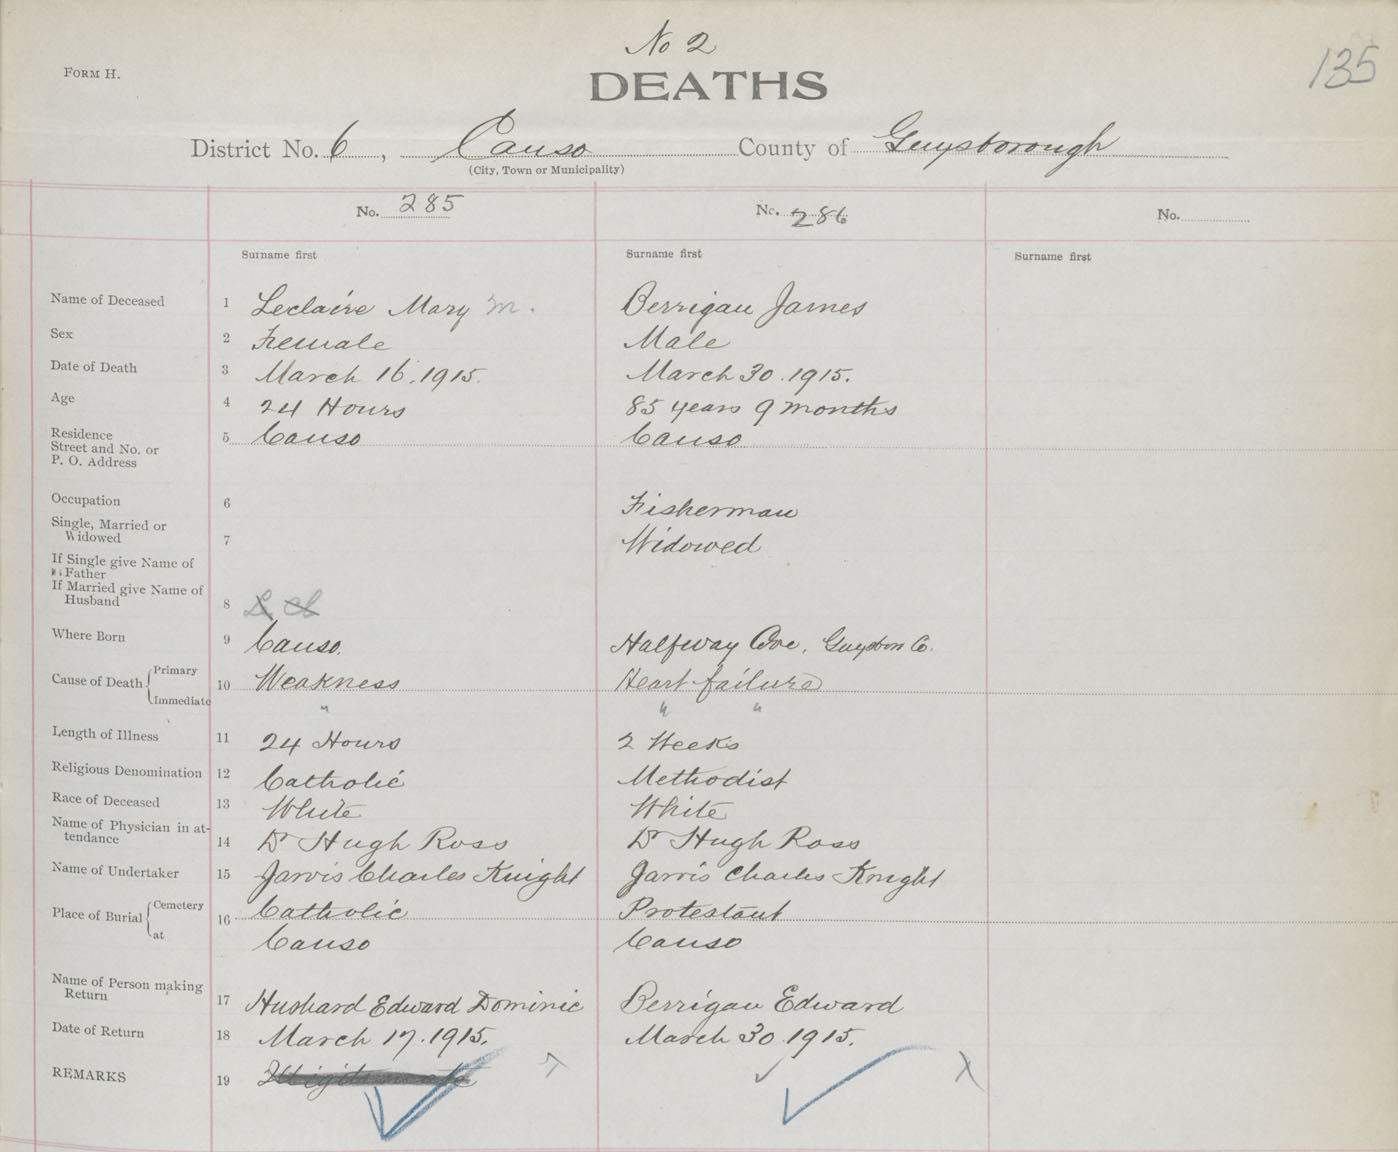 No 2
135
FORM H.
DEATHS
District No. 6, Canso County of Guysborough
(City, Town or Municipality)
No. 285 No. 286 No.
Surname first Surname first Surname first
Name of Deceased 1 Leclaire Mary M. Berrigan James
Sex 2 Female Male
Date of Death 3 March 16. 1915. March 30. 1915.
Age 4 24 Hours 85 years 9 months
Residence 5 Canso Canso
Street and No. or
P. O. Address
Occupation 6 Fisherman
Single, Married or
Widowed 7 Widowed
If Single give Name of
Father
If Married give Name of
Husband 8
Where Born 9 Canso. Halfway Cove, Guysboro Co.
Cause of Death Primary 10 Weakness Heart failure
Immediate " " "
Length of Illness 11 24 Hours 2 Weeks
Religious Denomination 12 Catholic Methodist
Race of Deceased 13 White White
Name of Physician in at-
tendance 14 Dr Hugh Ross Dr Hugh Ross
Name of Undertaker 15 Jarvis Charles Knight Jarvis Charles Knight
Place of Burial Cemetery 16 Catholic Protestant
at Canso Canso
Name of Person making
Return 17 Hushard Edward Dominic Berrigan Edward
Date of Return 18 March 17. 1915. March 30. 1915.
REMARKS 19 Illigitimate